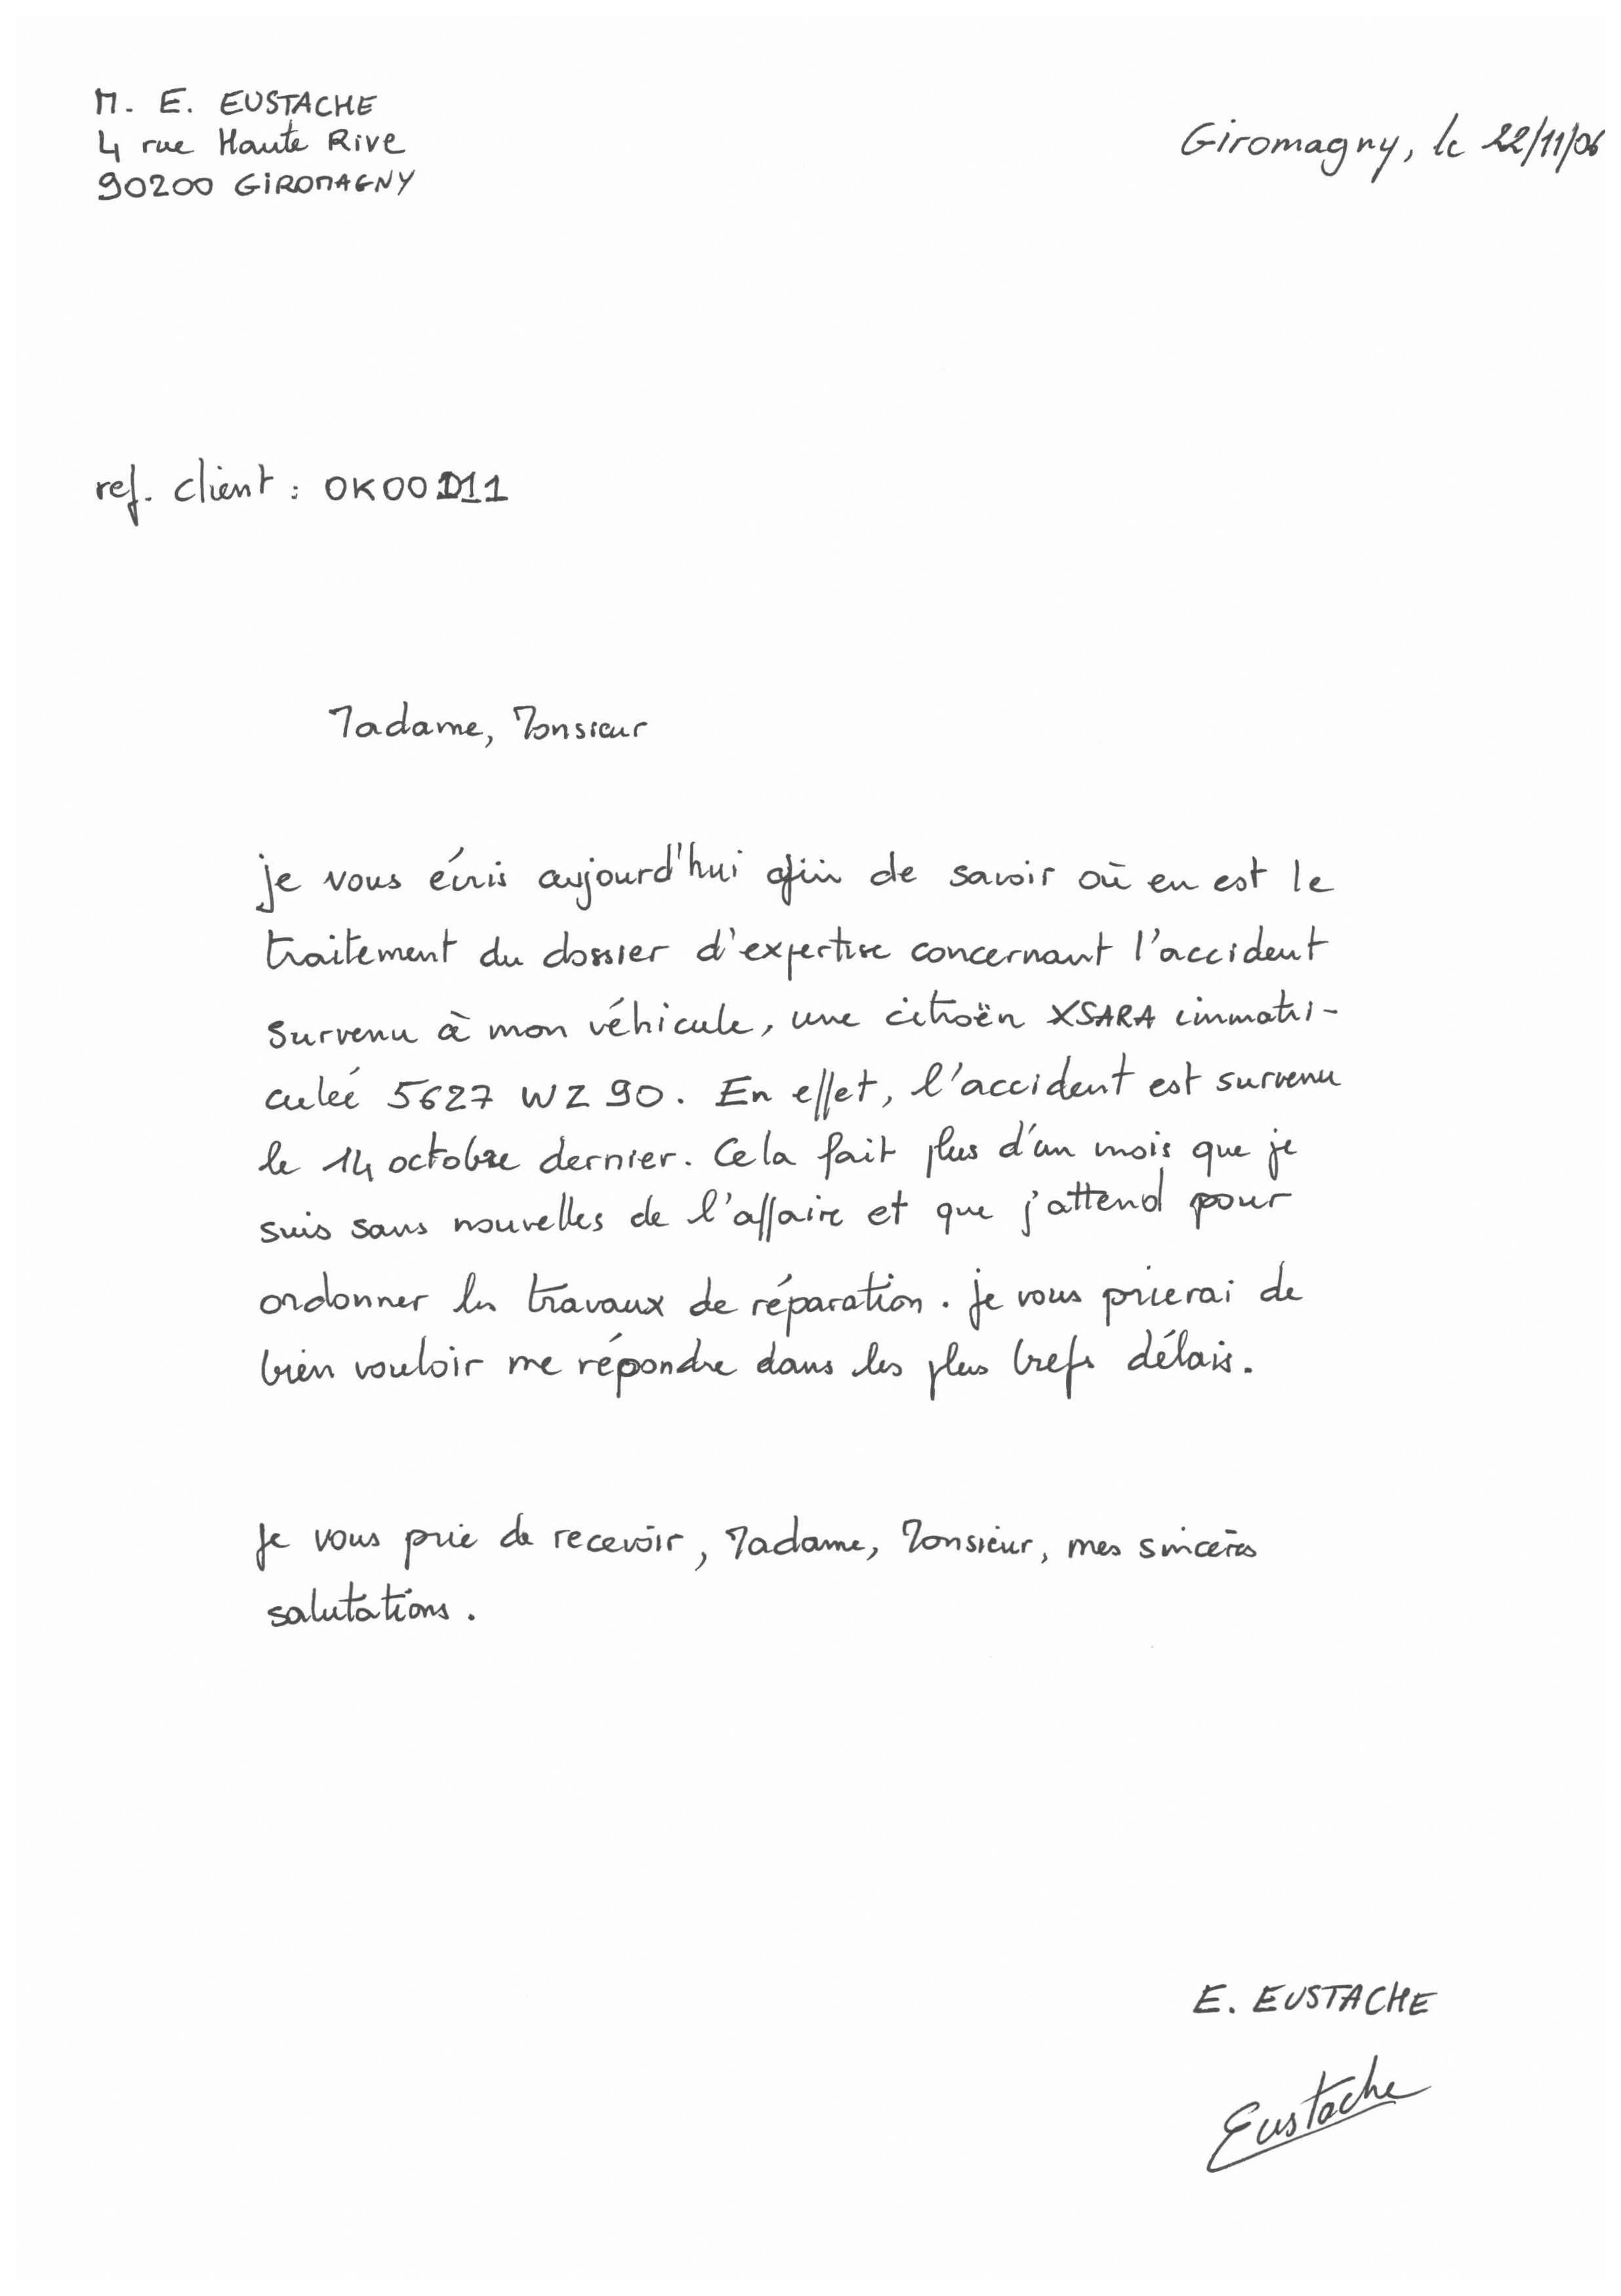 M. E. EUSTACHE
4 rue Haute Rive
90200 GIROMAGNY
Giromagny, le 22/11/06
ref. client : OK00D11
Madame, Monsieur
je vous écris aujourd'hui afin de savoir où en est le
traitement du dossier d'expertise concernant l'accident
survenu à mon véhicule, une citroën XSARA immatri-
culée 5627 WZ 90. En effet, l'accident est survenu
le 14 octobre dernier. Cela fait plus d'un mois que je
suis sans nouvelles de l'affaire et que j'attend pour
ordonner les travaux de réparation. je vous prierai de
bien vouloir me répondre dans les plus brefs délais.
Je vous prie de recevoir, Madame, Monsieur, mes sincères
salutations.
E. EUSTACHE
Eustache